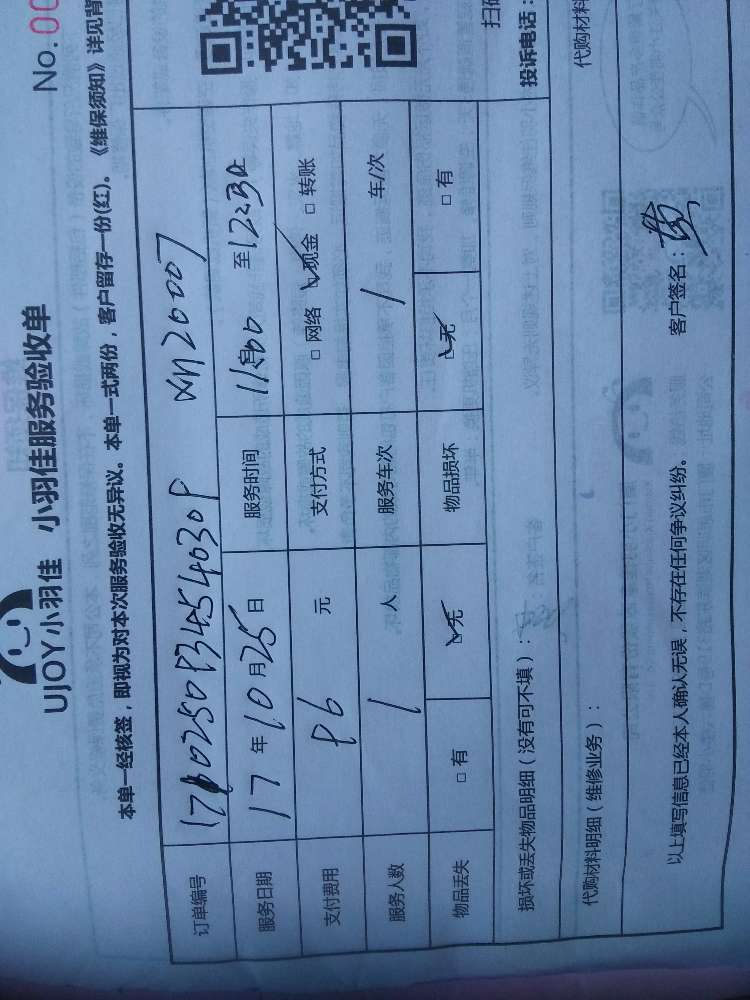 No.00
UJOY小羽佳 小羽佳服务验收单
本单一经核签，即视为对本次服务验收无异议。本单一式两份，客户留存一份(红)。《维保须知》详见背
订单编号
服务日期 17 年 10 月 25 日 服务时间 至 12:30
支付费用 96 元 支付方式 □ 网络 ☑ 现金 □ 转账
服务人数 1 人 服务车次 1 车/次
物品丢失 □ 有 ☑ 无 物品损坏 ☑ 无 □ 有
损坏或丢失物品明细（没有可不填）：
代购材料明细（维修业务）：
以上填写信息已经本人确认无误，不存在任何争议纠纷。 客户签名：
扫码
投诉电话：
代购材料